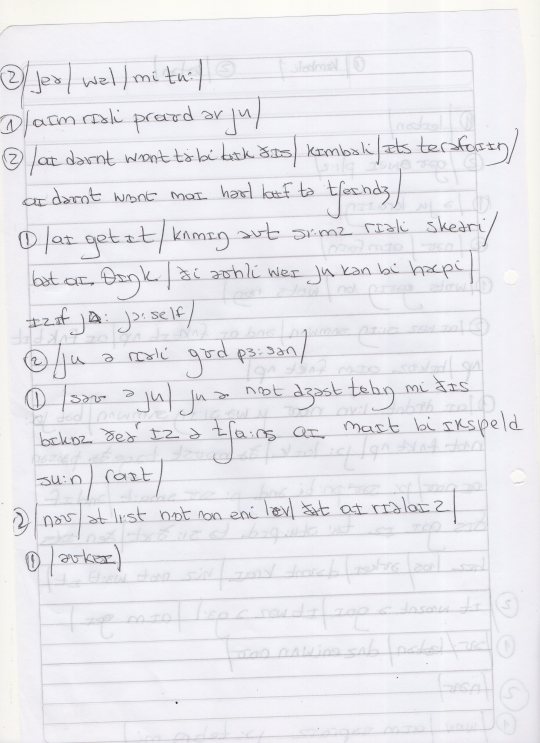 ② /jeə/ wəl/ mi tu:/
① /aɪm rɪəli praʊd əv ju/
② /aɪ dəʊnt wɒnt tə bi laɪk ðɪs/ kɪmbəli/ ɪts terəfaɪɪŋ/
aɪ dəʊnt wɒnt maɪ həʊl laɪf tə tʃeɪndʒ/
① /aɪ get ɪt/ kʌmɪŋ əʊt si:mz rɪəli skeəri/
bət aɪ θɪŋk/ ði əʊnli weɪ ju kən bi hæpi/
ɪz ɪf jɔ: jɔ:self/
② /ju ə rɪəli gʊd pɜ:sən/
① /səʊ ə ju/ ju ə nɒt dʒəst telɪŋ mi ðɪs
bɪkɒz ðeə ɪz ə tʃa:ns aɪ maɪt bi ɪkspeld
su:n/ raɪt/
② /nəʊ/ ət list nɒt ɒn eni lev/ ðət aɪ rɪəlaɪz/
① /əʊkeɪ/